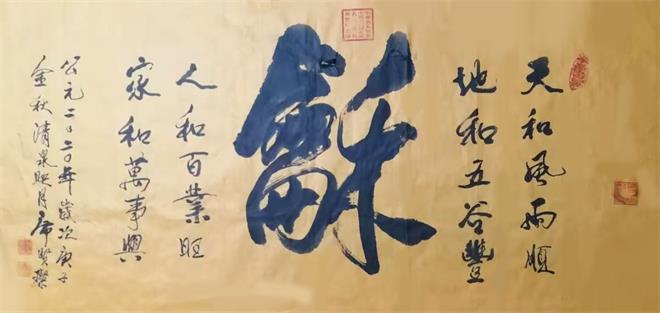 天和風雨順
地和五谷豐
龢
人和百業旺
家和萬事興
公元二〇二〇年歲次庚子
金秋清泉映月席賢